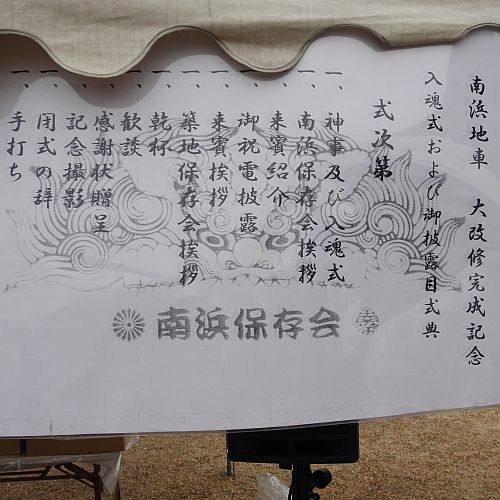 南浜地車　大改修完成記念
入魂式および御披露目式典
式次第
一、神事及び入魂式
一、南浜保存会挨拶
一、来賓紹介
一、御祝電披露
一、来賓挨拶
一、築地保存会挨拶
一、乾杯
一、歓談
一、感謝状贈呈
一、記念撮影
一、閉式の辞
一、手打ち
南浜保存会